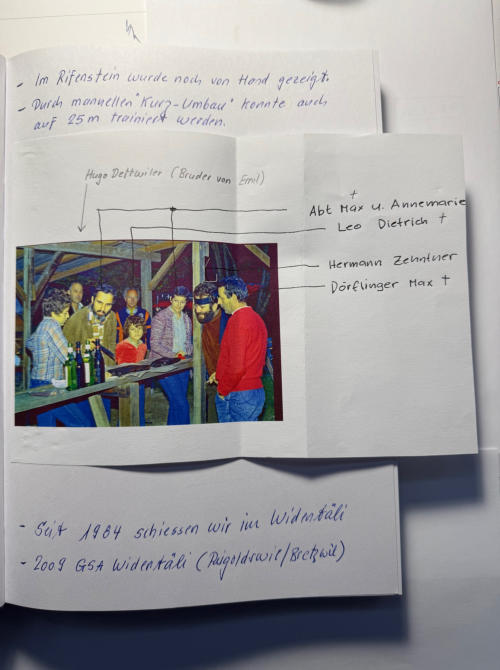 - Im Rifenstein wurde noch von Hand gezeigt.
- Durch manuellen "Kurz-Umbau" konnte auch
auf 25m trainiert werden.
Hugo Dettwiler (Bruder von Emil)
†
Abt Max u. Annemarie
Leo Dietrich †
Hermann Zehntner
Dörflinger Max †
- Seit 1984 schiessen wir im Widentäli
- 2009 GSA Widentäli (Reigoldswil/Bretzwil)